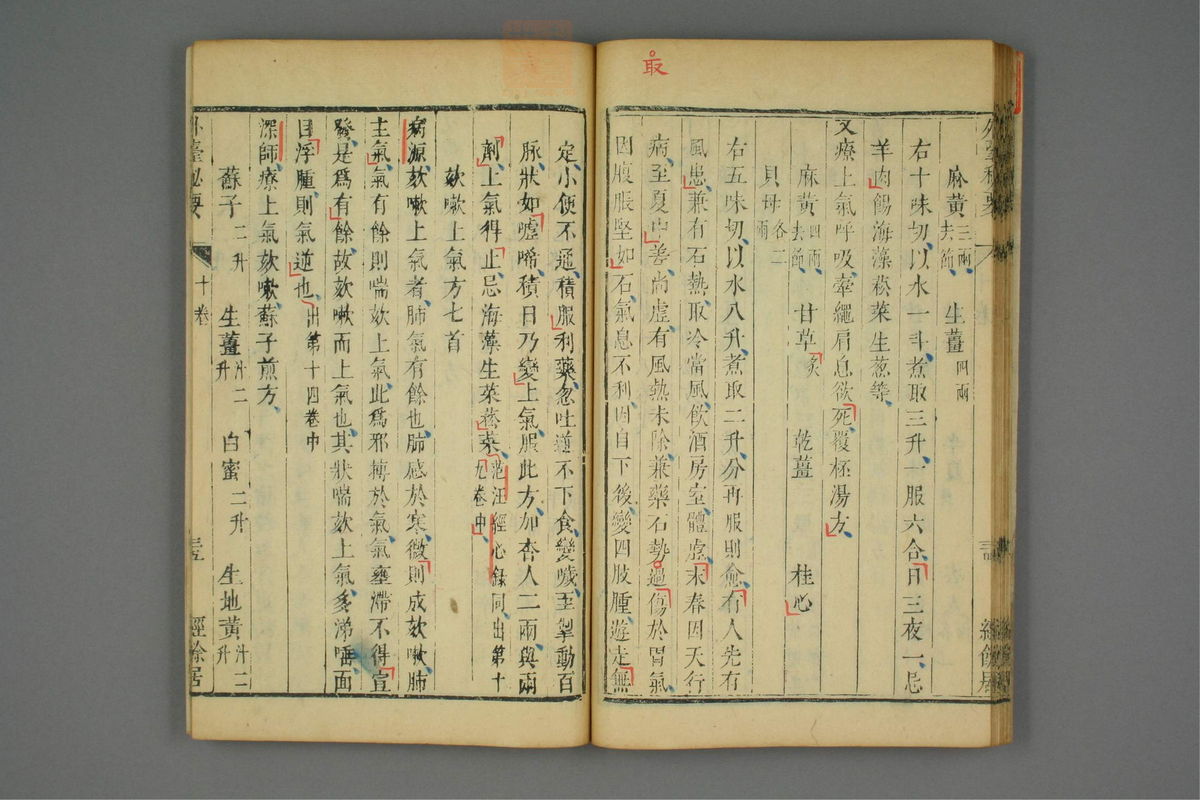 最
麻黃三兩去節 生薑四兩
右十味切以水一斗煮取三升一服六合日三夜一忌
羊肉餳海藻菘菜生葱等
又療上氣呼吸牽繩肩息欲死覆杯湯方
麻黃四兩去節 甘草炙 乾薑 桂心
貝母各二兩
右五味切以水八升煮取二升分再服則愈有人先有
風患兼有石熱取冷當風飲酒房室體虛末春因天行
病至夏中善尚虛有風熱未除兼藥石勢過傷於胃氣
因腹脹堅如石氣息不利因自下後變四肢腫遊走無
定小便不通積服利藥忽吐逆不下食變噦至掣動百
脉狀如噓啼積日乃變上氣服此方加杏人二兩與兩
劑上氣得止忌海藻生菜菘菜范汪經心錄同出第十九卷中
欬嗽上氣方七首
病源欬嗽上氣者肺氣有餘也肺感於寒微則成欬嗽肺
主氣氣有餘則喘欬上氣此爲邪搏於氣氣壅滯不得宣
發是爲有餘故欬嗽而上氣也其狀喘欬上氣多涕唾面
目浮腫則氣逆也出第十四卷中
深師療上氣欬嗽蘇子煎方
蘇子二升 生薑汁二升 白蜜二升 生地黃汁二升
外臺秘要 十卷 經餘居